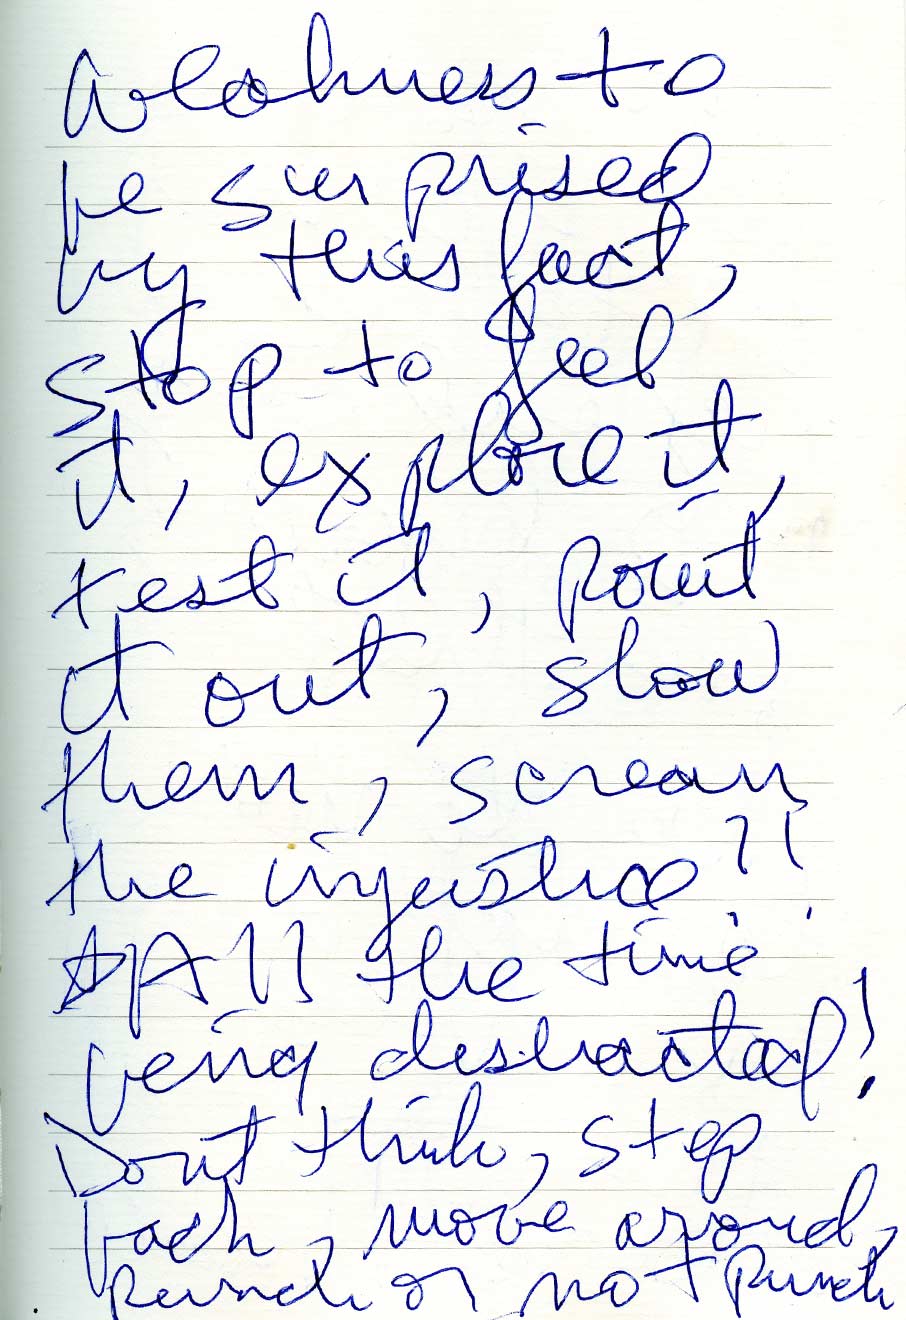 Weakness to
be surprised
by this fact,
stop to feel
it, explore it,
test it, point
it out, slow
them, scream
the injustice!!
☆ All the time
being distracted!
Dont think, step
back, move around,
Punch or not Punch